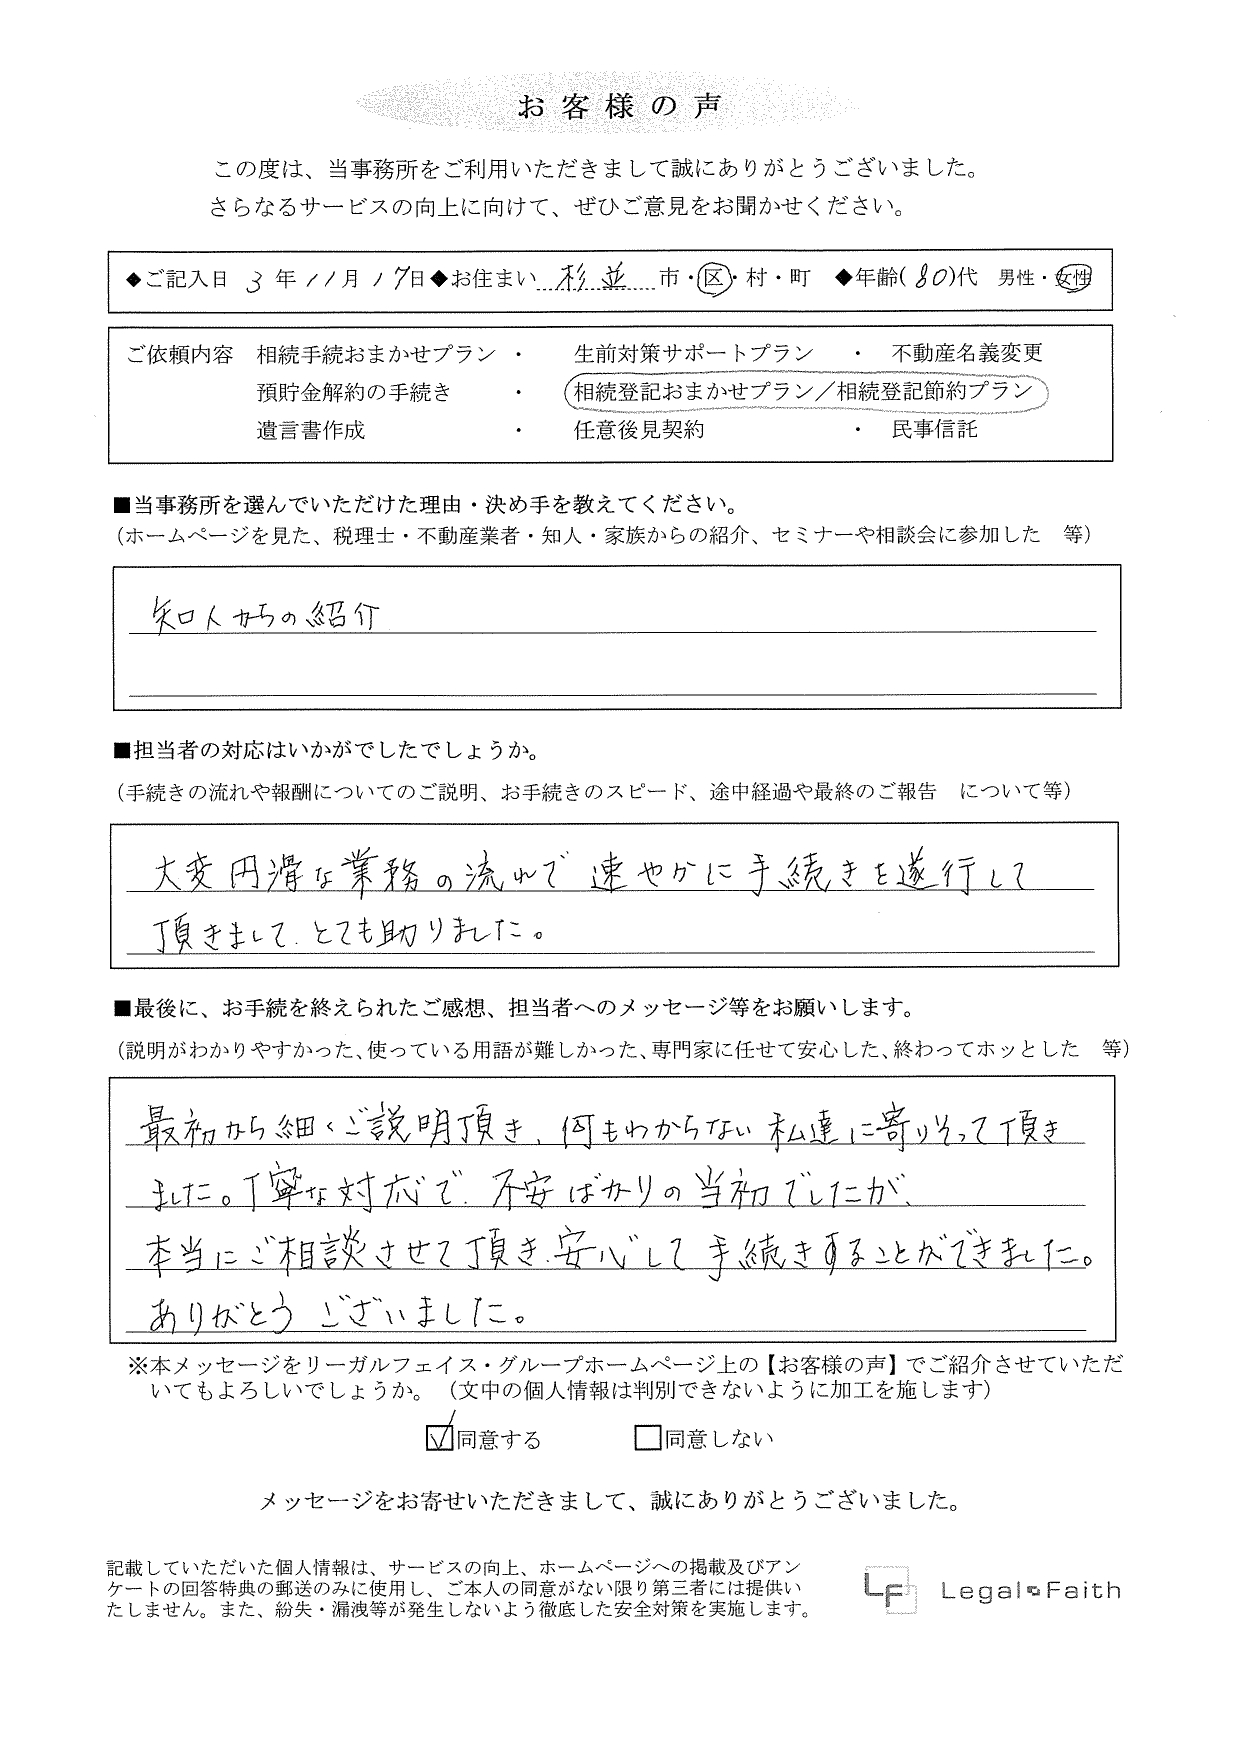 お客様の声
この度は、当事務所をご利用いただきまして誠にありがとうございました。
さらなるサービスの向上に向けて、ぜひご意見をお聞かせください。
◆ご記入日 3 年 11月 17日◆お住まい 杉並 市・区・村・町 ◆年齢(80)代 男性・女性
ご依頼内容 相続手続おまかせプラン ・ 生前対策サポートプラン ・ 不動産名義変更
預貯金解約の手続き ・ 相続登記おまかせプラン／相続登記節約プラン
遺言書作成 ・ 任意後見契約 ・ 民事信託
■当事務所を選んでいただけた理由・決め手を教えてください。
（ホームページを見た、税理士・不動産業者・知人・家族からの紹介、セミナーや相談会に参加した　等）
知人からの紹介
■担当者の対応はいかがでしたでしょうか。
（手続きの流れや報酬についてのご説明、お手続きのスピード、途中経過や最終のご報告　について等）
大変円滑な業務の流れで速やかに手続きを遂行して
頂きまして、とても助りました。
■最後に、お手続を終えられたご感想、担当者へのメッセージ等をお願いします。
（説明がわかりやすかった、使っている用語が難しかった、専門家に任せて安心した、終わってホッとした　等）
最初から細くご説明頂き、何もわからない私達に寄りそって頂き
ました。丁寧な対応で、不安ばかりの当初でしたが、
本当にご相談させて頂き、安心して手続きすることができました。
ありがとうございました。
※本メッセージをリーガルフェイス・グループホームページ上の【お客様の声】でご紹介させていただ
いてもよろしいでしょうか。（文中の個人情報は判別できないように加工を施します）
☑同意する □同意しない
メッセージをお寄せいただきまして、誠にありがとうございました。
記載していただいた個人情報は、サービスの向上、ホームページへの掲載及びアン
ケートの回答特典の郵送のみに使用し、ご本人の同意がない限り第三者には提供い
たしません。また、紛失・漏洩等が発生しないよう徹底した安全対策を実施します。
LF Legal Faith